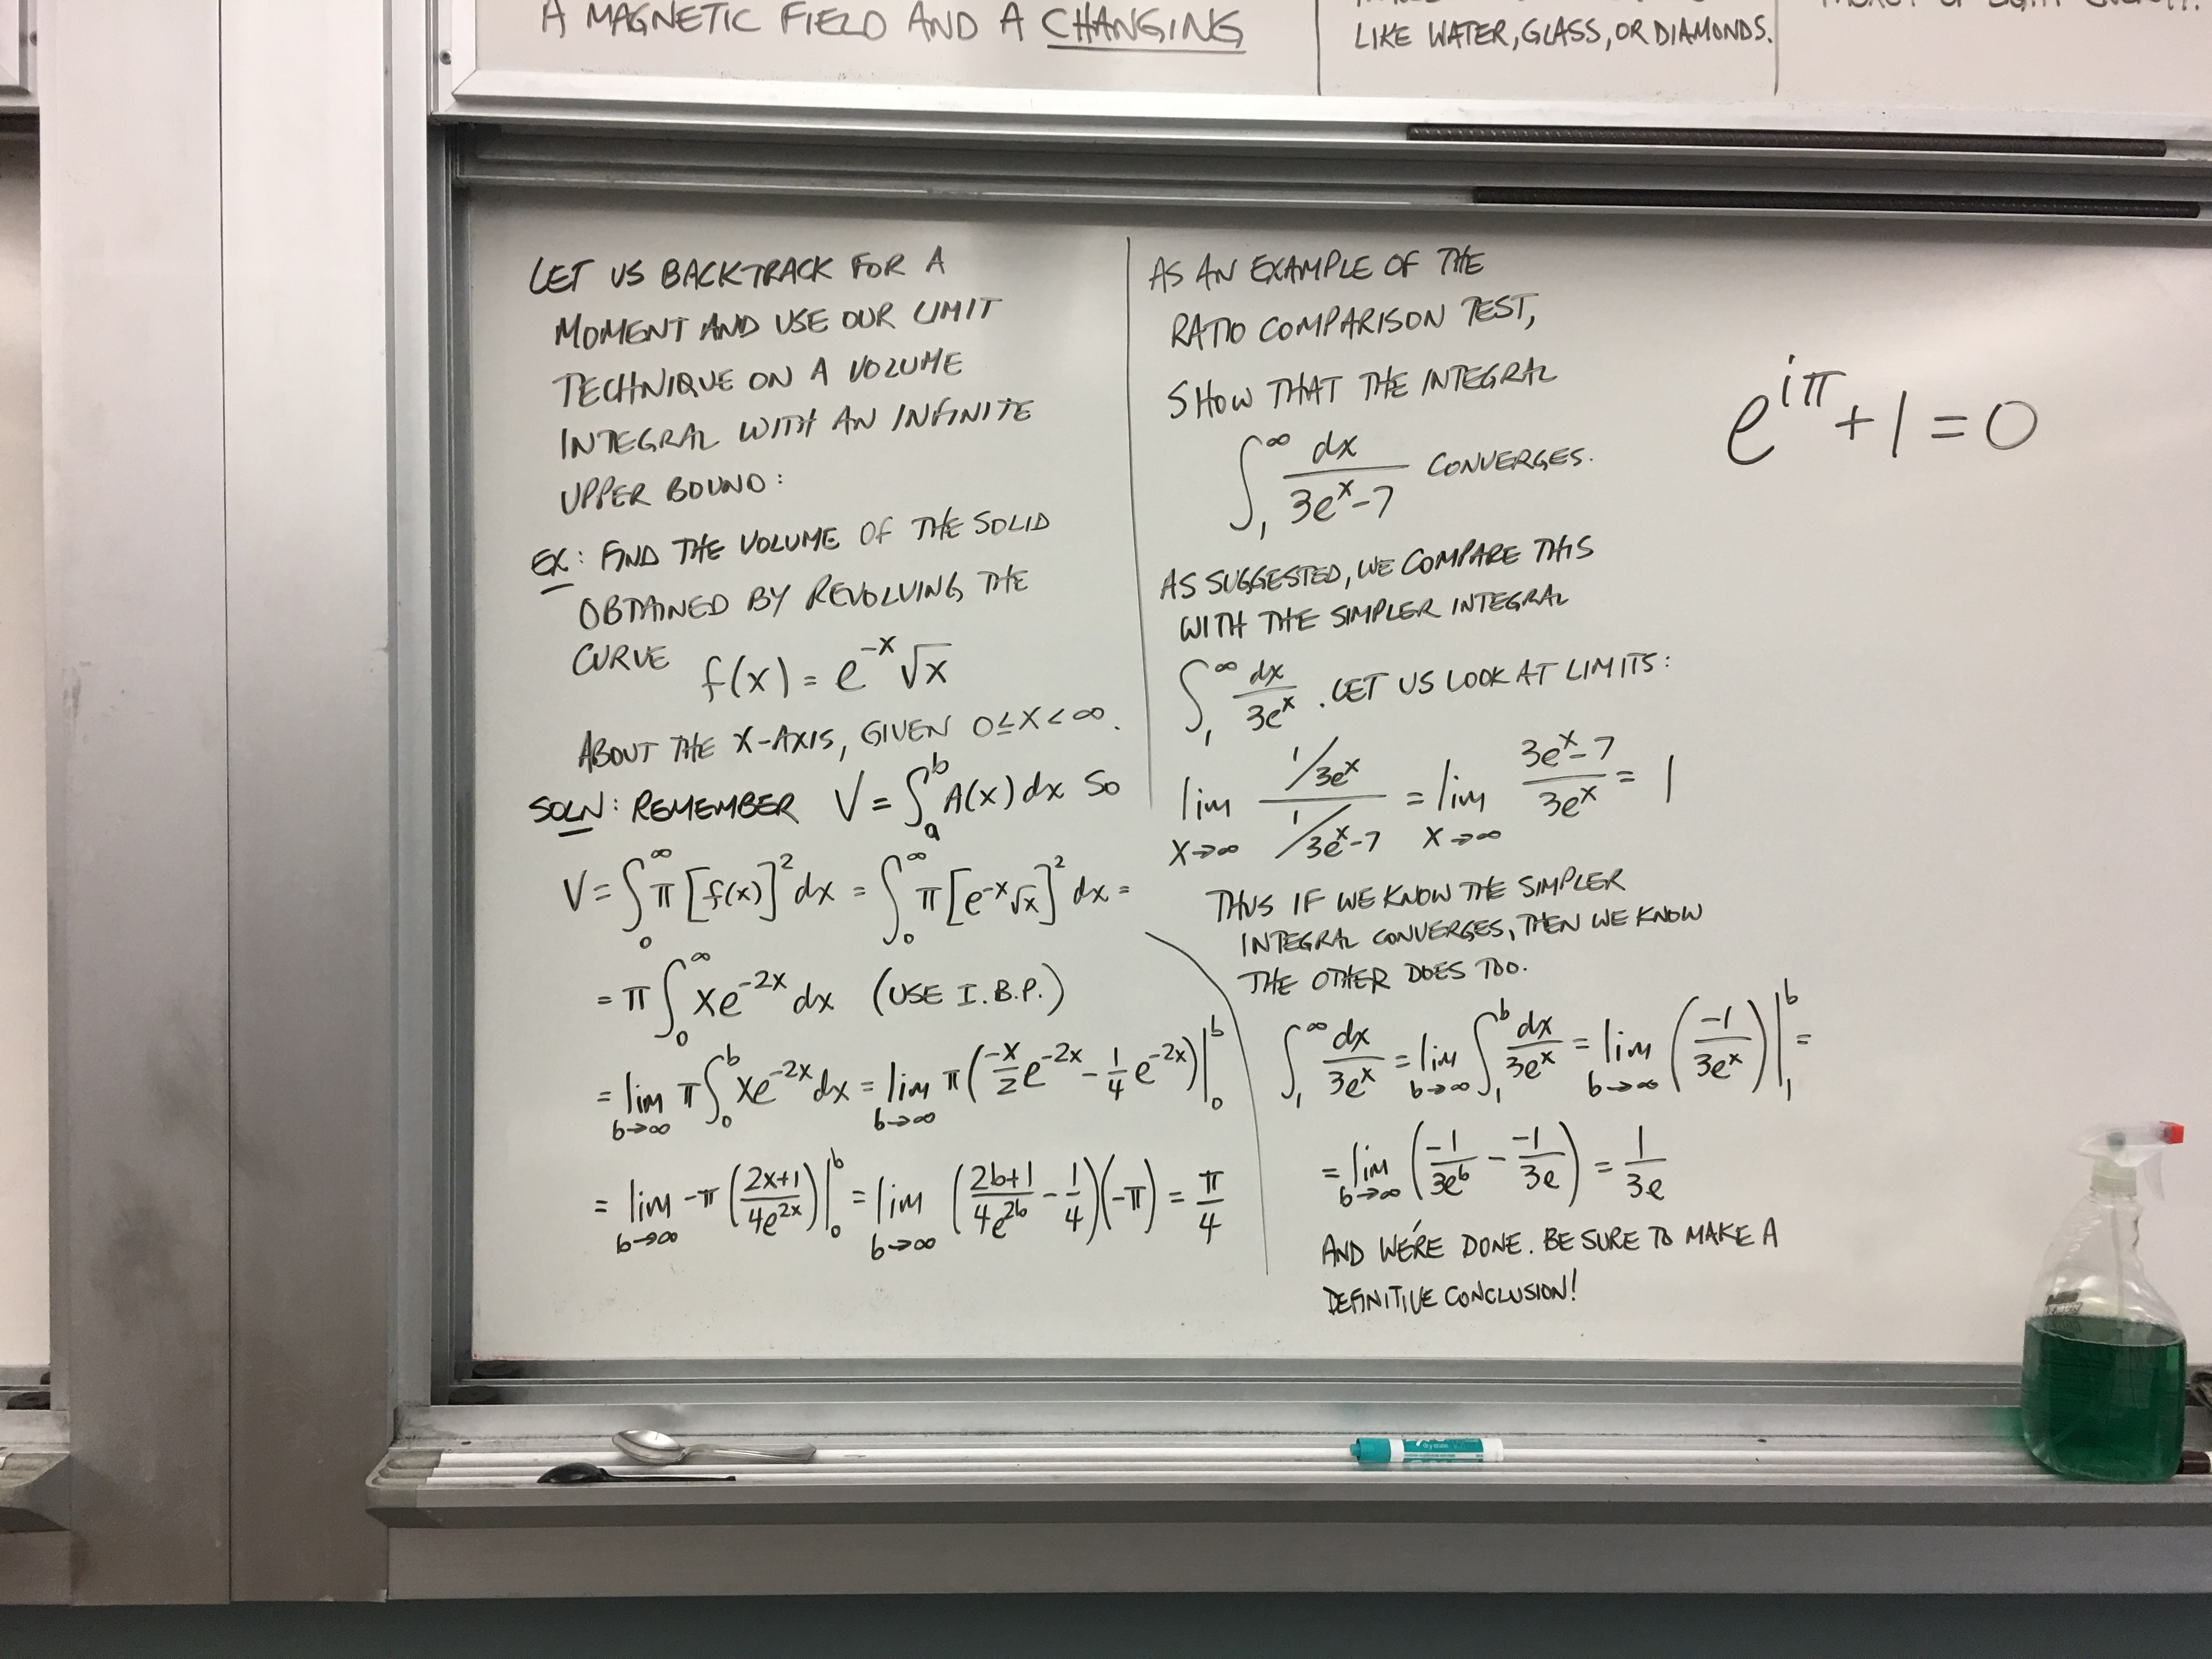 A MAGNETIC FIELD AND A CHANGING
LIKE WATER, GLASS, OR DIAMONDS.
LET US BACKTRACK FOR A
MOMENT AND USE OUR LIMIT
TECHNIQUE ON A VOLUME
INTEGRAL WITH AN INFINITE
UPPER BOUND:
EX: FIND THE VOLUME OF THE SOLID
OBTAINED BY REVOLVING THE
CURVE f(x) = e^{-x} √x
ABOUT THE X-AXIS, GIVEN 0 ≤ X < ∞.
SOLN: REMEMBER V = ∫_a^b A(x) dx SO
V = ∫_0^∞ π [f(x)]^2 dx = ∫_0^∞ π [e^{-x} √x]^2 dx =
= π ∫_0^∞ xe^{-2x} dx (USE I.B.P.)
= lim_{b→∞} π ∫_0^b xe^{-2x} dx = lim_{b→∞} π (-x/2 e^{-2x} - 1/4 e^{-2x}) |_0^b
= lim_{b→∞} -π ((2x+1)/(4e^{2x})) |_0^b = lim_{b→∞} ((2b+1)/(4e^{2b}) - 1/4)(-π) = π/4
AS AN EXAMPLE OF THE
RATIO COMPARISON TEST,
SHOW THAT THE INTEGRAL
∫_1^∞ dx/(3e^x-7) CONVERGES.
AS SUGGESTED, WE COMPARE THIS
WITH THE SIMPLER INTEGRAL
∫_1^∞ dx/(3e^x). LET US LOOK AT LIMITS:
lim_{x→∞} (1/3e^x)/(1/3e^x-7) = lim_{x→∞} (3e^x-7)/(3e^x) = 1
THUS IF WE KNOW THE SIMPLER
INTEGRAL CONVERGES, THEN WE KNOW
THE OTHER DOES TOO.
∫_1^∞ dx/(3e^x) = lim_{b→∞} ∫_1^b dx/(3e^x) = lim_{b→∞} (-1/(3e^x)) |_1^b =
= lim_{b→∞} (-1/(3e^b) - -1/(3e)) = 1/(3e)
AND WE'RE DONE. BE SURE TO MAKE A
DEFINITIVE CONCLUSION!
e^{iπ} + 1 = 0